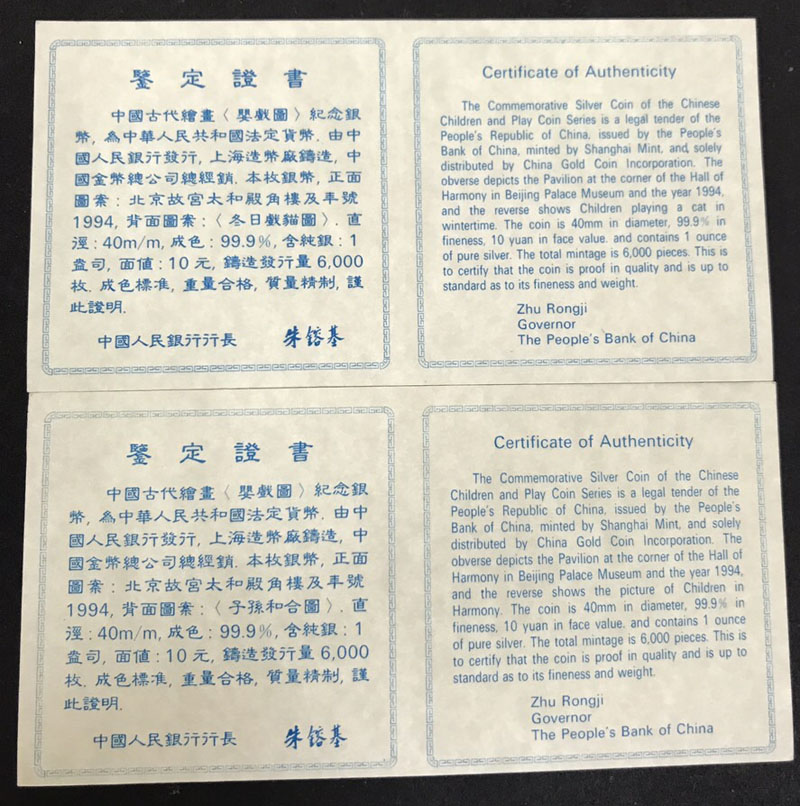 鑒定證書
中國古代繪畫〈嬰戲圖〉紀念銀
幣, 為中華人民共和國法定貨幣. 由中
國人民銀行發行, 上海造幣廠鑄造, 中
國金幣總公司總經銷. 本枚銀幣, 正面
圖案: 北京故宮太和殿角樓及年號
1994, 背面圖案:〈冬日戲貓圖〉. 直
徑: 40m/m, 成色: 99.9%, 含純銀: 1
盎司, 面值: 10元, 鑄造發行量 6,000
枚. 成色標准, 重量合格, 質量精制, 謹
此證明.
中國人民銀行行長 朱鎔基
Certificate of Authenticity
The Commemorative Silver Coin of the Chinese
Children and Play Coin Series is a legal tender of the
People's Republic of China, issued by the People's
Bank of China, minted by Shanghai Mint, and solely
distributed by China Gold Coin Incorporation. The
obverse depicts the Pavilion at the corner of the Hall of
Harmony in Beijing Palace Museum and the year 1994,
and the reverse shows Children playing a cat in
wintertime. The coin is 40mm in diameter, 99.9% in
fineness, 10 yuan in face value. and contains 1 ounce
of pure silver. The total mintage is 6,000 pieces. This is
to certify that the coin is proof in quality and is up to
standard as to its fineness and weight.
Zhu Rongji
Governor
The People's Bank of China
鑒定證書
中國古代繪畫〈嬰戲圖〉紀念銀
幣, 為中華人民共和國法定貨幣. 由中
國人民銀行發行, 上海造幣廠鑄造, 中
國金幣總公司總經銷. 本枚銀幣, 正面
圖案: 北京故宮太和殿角樓及年號
1994, 背面圖案:〈子孫和合圖〉. 直
徑: 40m/m, 成色: 99.9%, 含純銀: 1
盎司, 面值: 10元, 鑄造發行量 6,000
枚. 成色標准, 重量合格, 質量精制, 謹
此證明.
中國人民銀行行長 朱鎔基
Certificate of Authenticity
The Commemorative Silver Coin of the Chinese
Children and Play Coin Series is a legal tender of the
People's Republic of China, issued by the People's
Bank of China, minted by Shanghai Mint, and solely
distributed by China Gold Coin Incorporation. The
obverse depicts the Pavilion at the corner of the Hall of
Harmony in Beijing Palace Museum and the year 1994,
and the reverse shows the picture of Children in
Harmony. The coin is 40mm in diameter, 99.9% in
fineness, 10 yuan in face value. and contains 1 ounce
of pure silver. The total mintage is 6,000 pieces. This is
to certify that the coin is proof in quality and is up to
standard as to its fineness and weight.
Zhu Rongji
Governor
The People's Bank of China